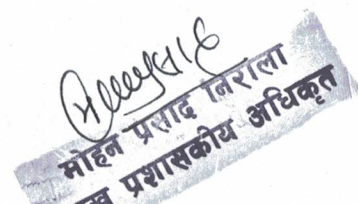 मोहन प्रसाद निराला
प्रशासकीय अधिकृत